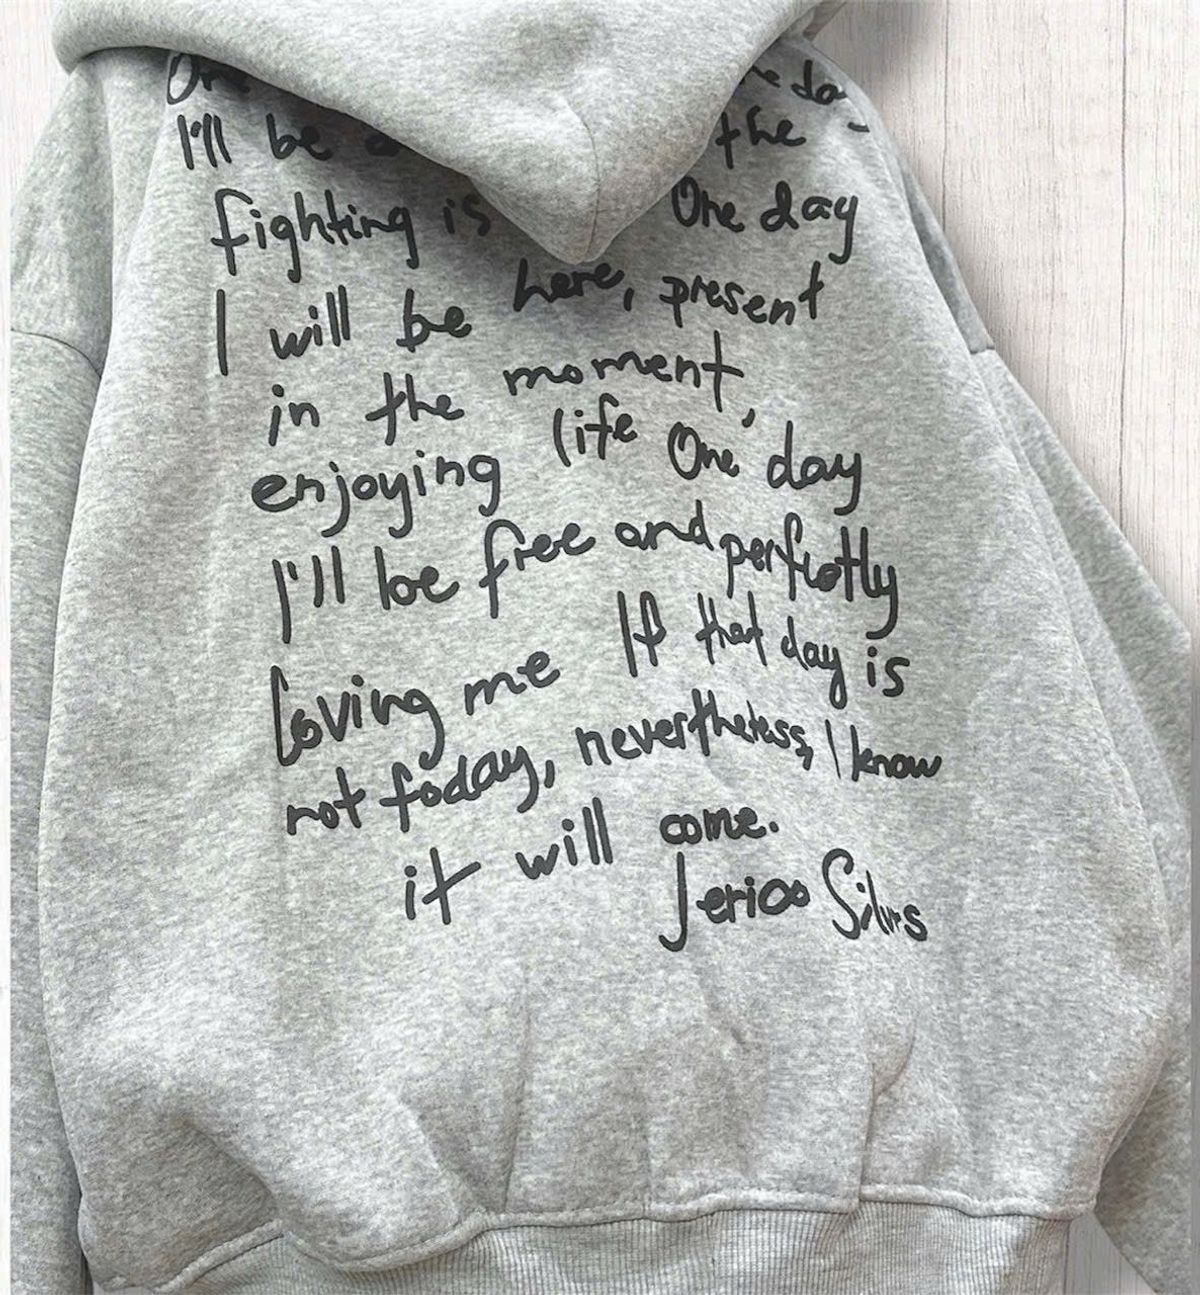 I'll be the
fighting is One day
I will be here, present
in the moment,
enjoying life One day
I'll be free and perfectly
loving me If that day is
not today, nevertheless, I know
it will come.
Jerico Silvers